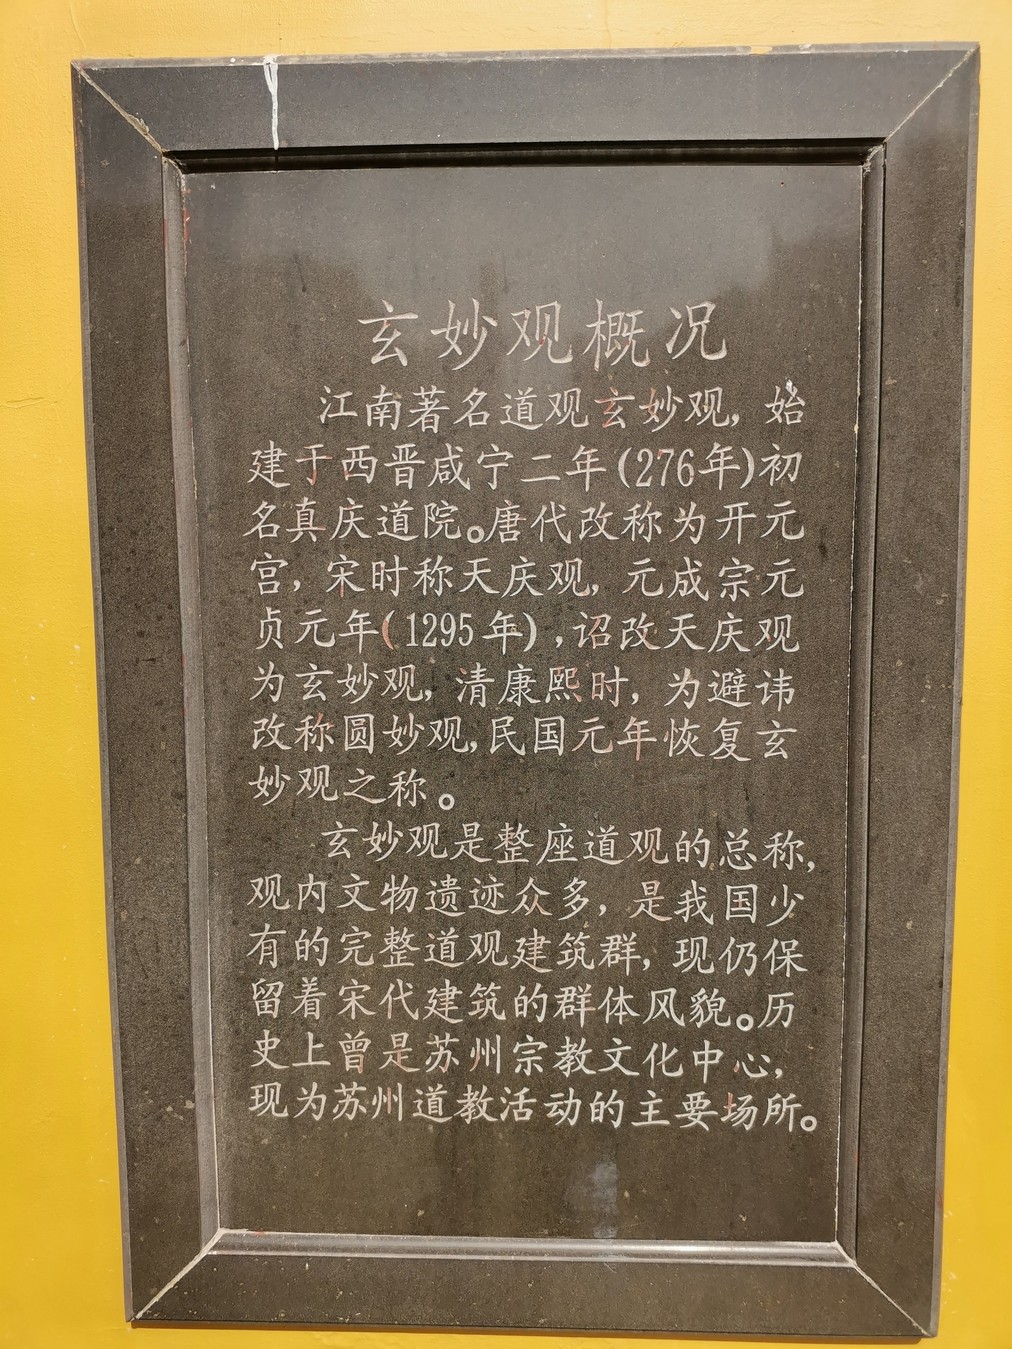 玄妙观概况
江南著名道观玄妙观，始
建于西晋咸宁二年(276年)初
名真庆道院。唐代改称为开元
宫，宋时称天庆观，元成宗元
贞元年(1295年)，诏改天庆观
为玄妙观，清康熙时，为避讳
改称圆妙观，民国元年恢复玄
妙观之称。
玄妙观是整座道观的总称，
观内文物遗迹众多，是我国少
有的完整道观建筑群，现仍保
留着宋代建筑的群体风貌。历
史上曾是苏州宗教文化中心，
现为苏州道教活动的主要场所。